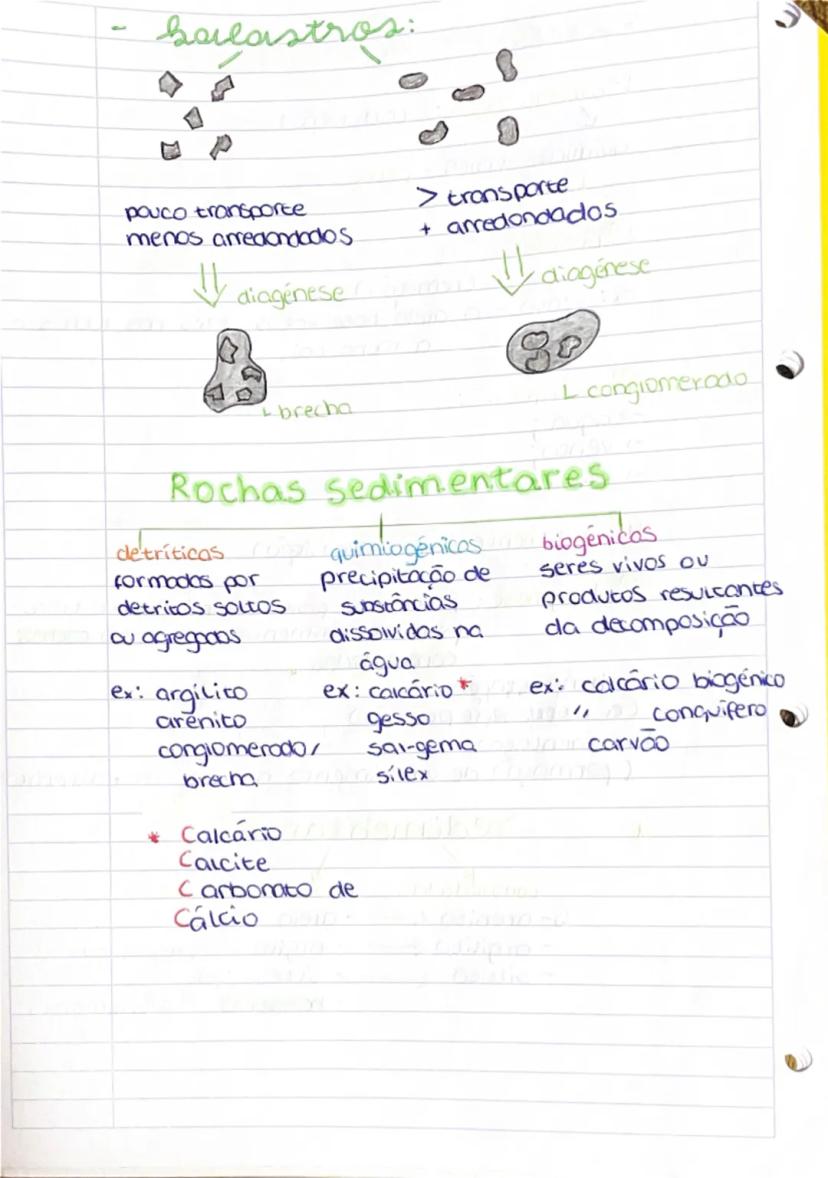 - balastros:
pouco transporte
menos arredondados
> transporte
+ arredondados
diagénese
diagénese
brecha
conglomerado
Rochas sedimentares
detríticas
formadas por
detritos soltos
ou agregados
ex: argilito
arenito
conglomerado/
brecha
quimiogénicas
precipitação de
substâncias
dissolvidas na
água
ex: calcário *
gesso
sal-gema
sílex
biogénicas
seres vivos ou
produtos resultantes
da decomposição
ex: calcário biogénico
,, conquífero
carvão
* Calcário
Calcite
Carbonato de
Cálcio